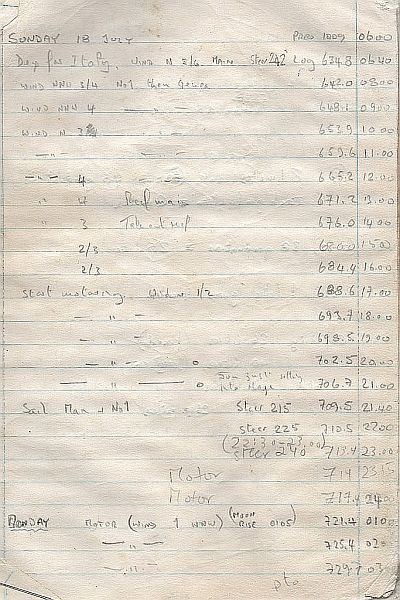 SUNDAY 18 JULY PRES 1009 0600
Dep for Italy. WIND N 3/4 MAIN Steer 242° Log 634.8 0640
WIND NNW 3/4 No1 then Genoa 642.0 0800
WIND NNW 4 — " — 648.1 0900
WIND N 3 — " — 653.9 10.00
— " — — " — 659.6 11.00
— " — 4 665.2 12.00
" 4 Reef main 671.2 13.00
" 3 Take out reef 676.0 1400
2/3 680.0 1500
2/3 684.4 16.00
Start motoring. Wind N 1/2 688.6 17.00
— " — 693.7 18.00
— " — 698.5 19.00
— " — 0 702.5 20.00
— " — 0 Sun just setting into 706.7 21.00
Sail Main + No1 Steer 215 709.5 21.40
Steer 225 710.5 2200
(22:30-23.00)
Steer 240 713.4 23.00
Motor 714 2315
Motor 717.4 2400
MONDAY MOTOR (WIND 1 WNW) (MOON RISE 0105) 721.4 0100
— " — 725.4 02
— " — 729.1 03
pto